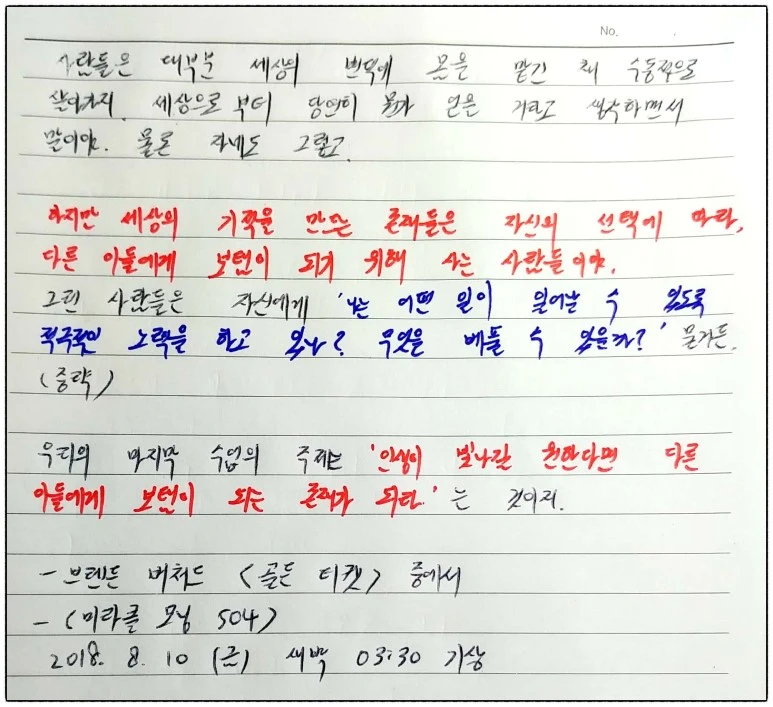 No.
사람들은 대부분 세상의 변덕에 몸을 맡긴 채 수동적으로
살아가지. 세상으로부터 당연히 뭔가 얻을 거라고 생각하면서
말이야. 물론 자네도 그렇고.
하지만 세상의 기적을 만드는 존재들은 자신의 선택에 따라,
다른 이들에게 보탬이 되기 위해 사는 사람들이야.
그런 사람들은 자신에게 '나는 어떤 일이 일어날 수 있도록
적극적인 노력을 하고 있나? 무엇을 베풀 수 있을까?' 묻거든.
(중략)
우리의 마지막 수업의 주제는 '인생이 빛나길 원한다면 다른
이들에게 보탬이 되는 존재가 되라.'는 것이지.
- 브렌든 버처드 <골든 티켓> 중에서
- (미라클 모닝 504)
2018. 8. 10 (금) 새벽 03:30 기상